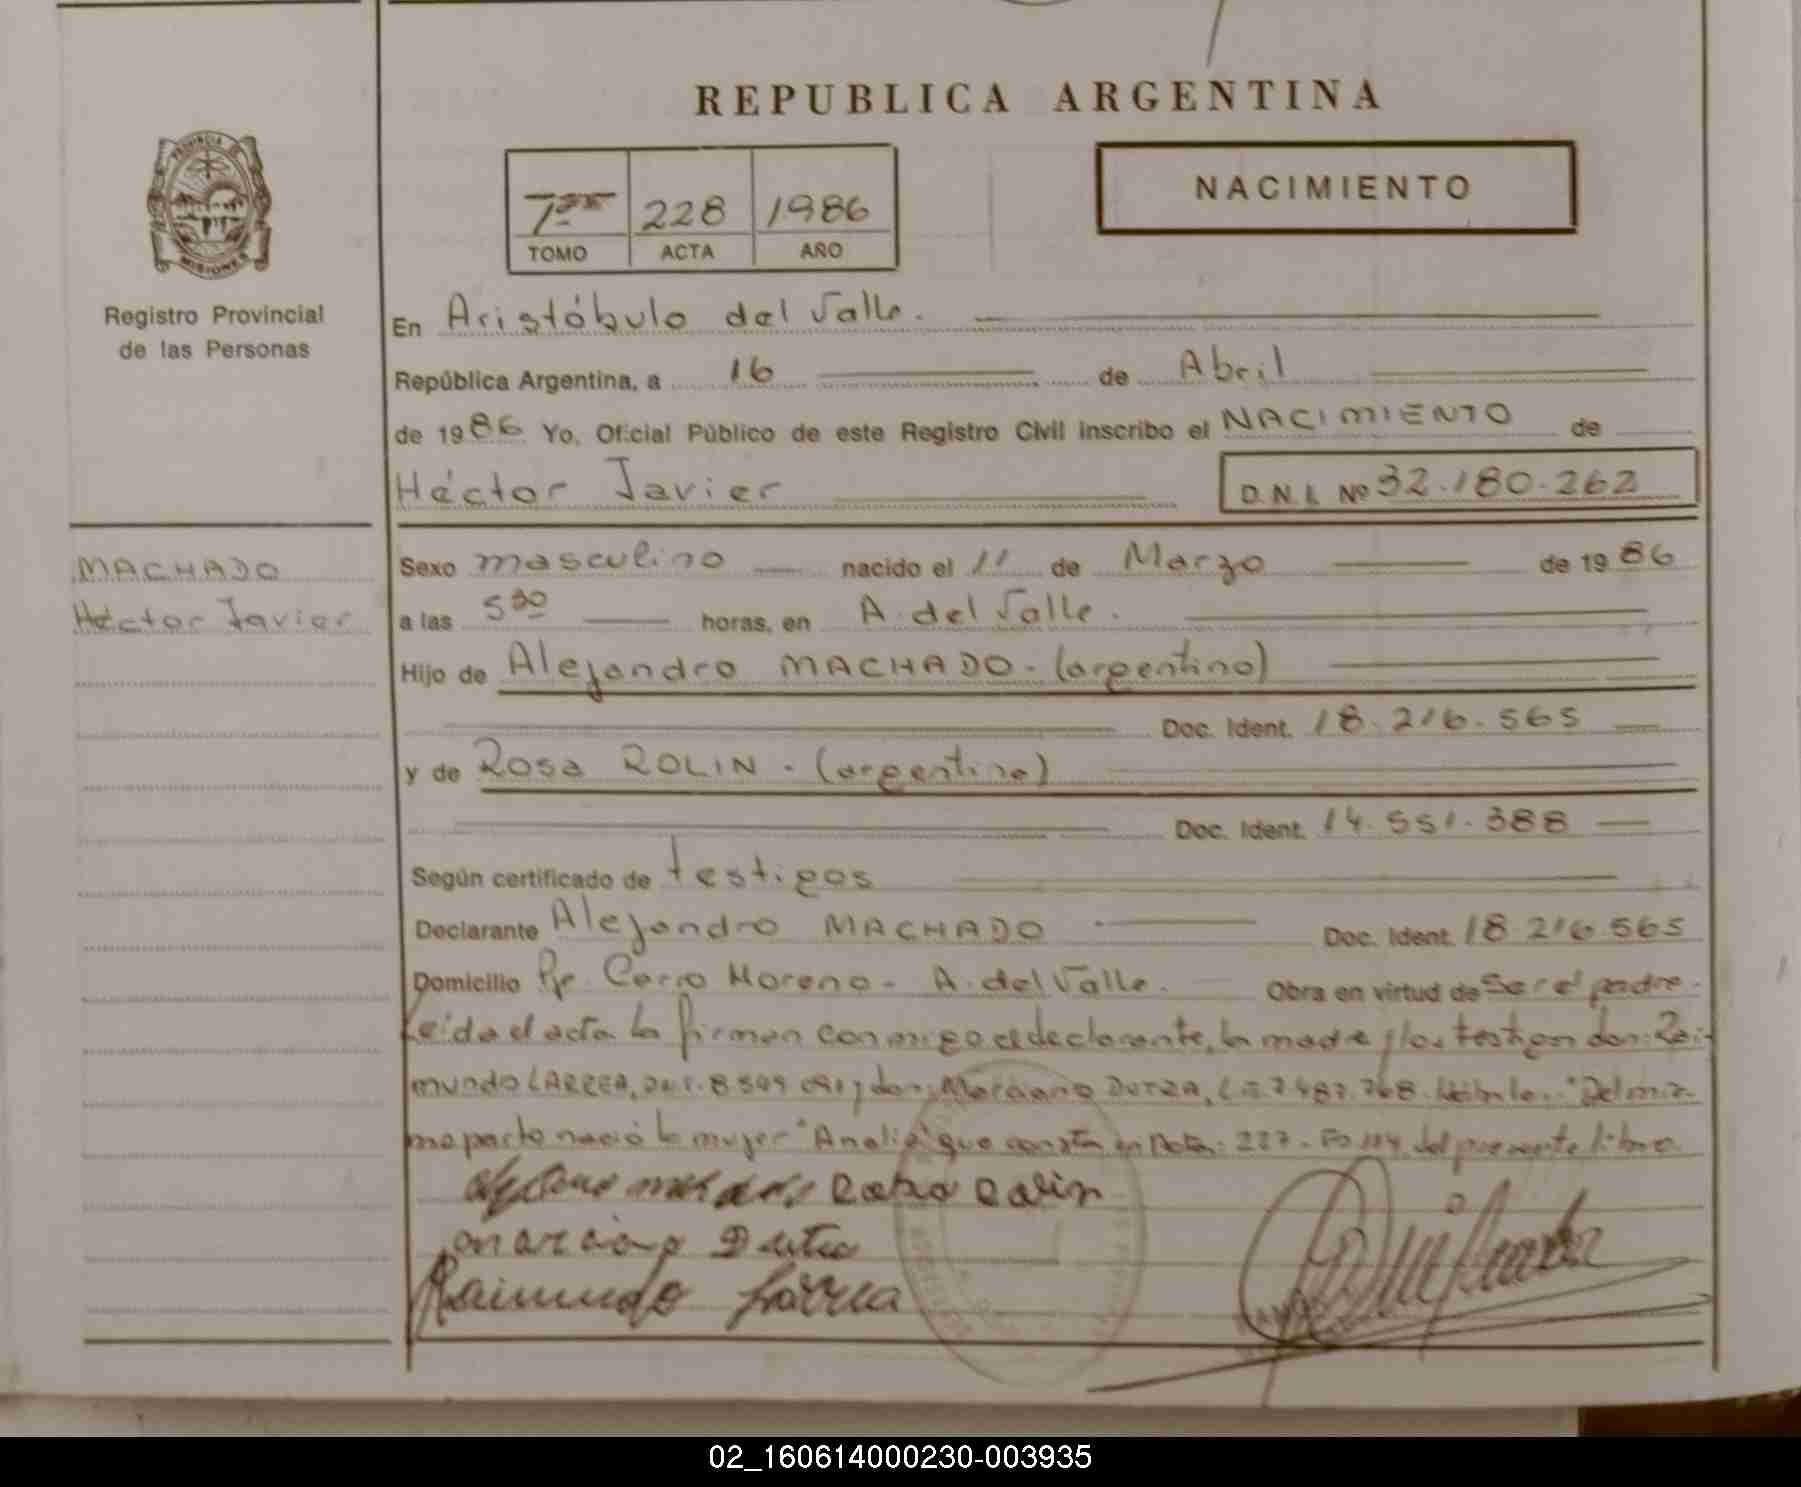 REPUBLICA ARGENTINA
PROVINCIA DE MISIONES
Registro Provincial
de las Personas
228 1986
TOMO ACTA AÑO
NACIMIENTO
En Aristóbulo del Valle.
República Argentina, a 16 de Abril
de 1986 Yo, Oficial Público de este Registro Civil inscribo el NACIMIENTO de
Héctor Javier D.N.I. Nº 32.180.262
MACHADO
Héctor Javier
Sexo masculino nacido el 11 de Marzo de 1986
a las 5 30 horas, en A. del Valle.
Hijo de Alejandro MACHADO - (argentino)
Doc. Ident. 18.216.565
y de Rosa ROLIN - (argentina)
Doc. Ident. 14.551.388
Según certificado de testigos
Declarante Alejandro MACHADO Doc. Ident. 18 216 565
Domicilio Pje. Cerro Moreno - A. del Valle. Obra en virtud de Ser el padre.
Leída el acta la firman conmigo el declarante, la madre y los testigos don: Rai-
mundo LARREA, y don: Marciano DUTRA, "Del mis-
mo parto nació la mujer "Analia" que consta en Acta: 227 - Fº 114 del presente libro.
Rosa Rolin
marciano Dutra
Raimundo Larrea
02_160614000230-003935